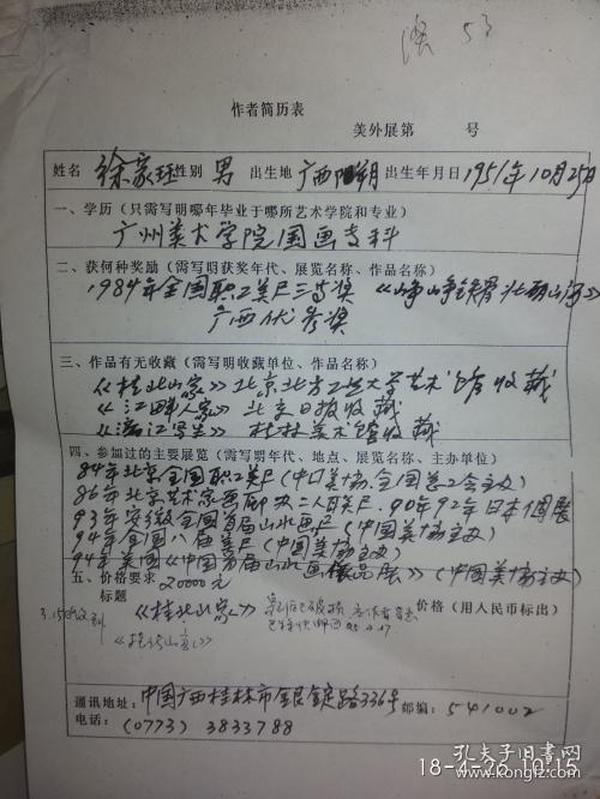 溴 53
作者简历表
美外展第 号
姓名 徐家珏 性别 男 出生地 广西阳朔 出生年月日 1951年10月25日
一、学历（只需写明哪年毕业于哪所艺术学院和专业）
广州美术学院国画专科
二、获何种奖励（需写明获奖年代、展览名称、作品名称）
1984年全国职工美展三等奖《峥峥铁骨壮朔山河》
广西优秀奖
三、作品有无收藏（需写明收藏单位、作品名称）
《桂北山家》北京北方工业大学艺术馆收藏
《江畔人家》北京日报收藏
《漓江写生》桂林美术馆收藏
四、参加过的主要展览（需写明年代、地点、展览名称、主办单位）
84年北京全国职工美展（中国美协、全国总工会主办）
86年北京艺术家画廊办二人联展.90年92年日本个展
93年安徽全国首届山水画展（中国美协主办）
94年全国八届美展（中国美协主办）
94年美国《中国首届山水画作品展》（中国美协主办）
五、价格要求 20000元
标题 《桂北山家》 价格（用人民币标出）
3.15收到
《桂北山家》
通讯地址：中国广西桂林市銀錠路336号 邮编：541002
电话：（0773）3833788
孔夫子旧书网
www.kongfz.com
18-4-26 10:15